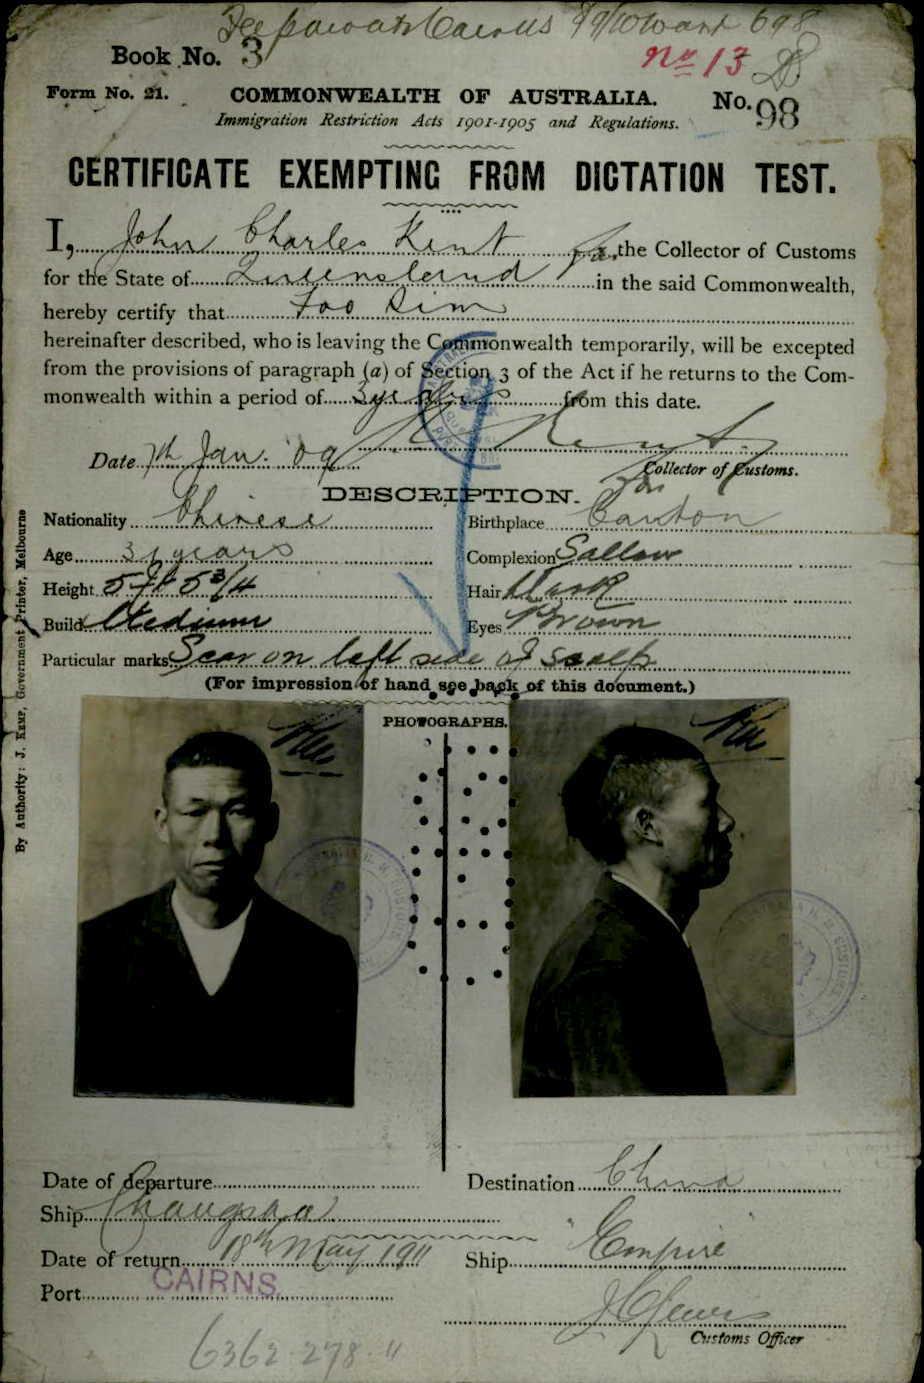 Fee paid at Cairns
Book No. 3
No 13
Form No. 21.
COMMONWEALTH OF AUSTRALIA.
No. 98
Immigration Restriction Acts 1901-1905 and Regulations.
CERTIFICATE EXEMPTING FROM DICTATION TEST.
I, John Charles Kent for the Collector of Customs
for the State of Queensland in the said Commonwealth,
hereby certify that Foo Sim
hereinafter described, who is leaving the Commonwealth temporarily, will be excepted
from the provisions of paragraph (a) of Section 3 of the Act if he returns to the Com-
monwealth within a period of 3 years from this date.
Date 7th Jan. 09 Kent.
for Collector of Customs.
DESCRIPTION.
Nationality Chinese Birthplace Canton
Age 31 years Complexion Sallow
Height 5 ft 5 3/4 Hair Dark
Build Medium Eyes Brown
Particular marks Scar on left side of scalp
(For impression of hand see back of this document.)
PHOTOGRAPHS.
By Authority: J. KEMP, Government Printer, Melbourne
Date of departure Destination China
Ship Changsha
Date of return 18th May 1911 Ship "Empire"
Port CAIRNS
Customs Officer
6362.278."